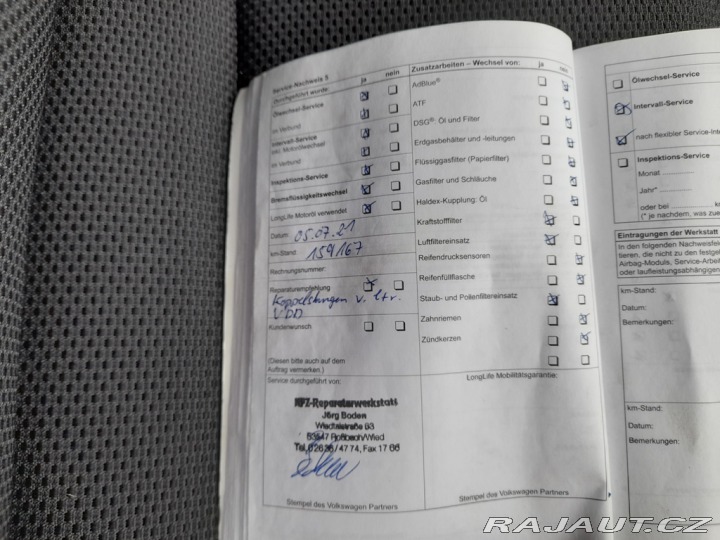 Service-Nachweis 5
Durchgeführt wurde: ja nein
Ölwechsel-Service
im Verbund
Intervall-Service
inkl. Motorölwechsel
im Verbund
Inspektions-Service
Bremsflüssigkeitswechsel
LongLife Motoröl verwendet
Datum: 05.07.21
km-Stand: 159167
Rechnungsnummer:
Reparaturempfehlung
Koppelstangen v. ltr.
VDD
Kundenwunsch
(Diesen bitte auch auf dem
Auftrag vermerken.)
Service durchgeführt von:
KFZ-Reparaturwerkstatt
Jörg Boden
Wiedtalstraße 63
53547 Roßbach/Wied
Tel. 02638/4774, Fax 17 66
Stempel des Volkswagen Partners
Zusatzarbeiten – Wechsel von: ja nein
AdBlue®
ATF
DSG®: Öl und Filter
Erdgasbehälter und -leitungen
Flüssiggasfilter (Papierfilter)
Gasfilter und Schläuche
Haldex-Kupplung: Öl
Kraftstofffilter
Luftfiltereinsatz
Reifendrucksensoren
Reifenfüllflasche
Staub- und Pollenfiltereinsatz
Zahnriemen
Zündkerzen
LongLife Mobilitätsgarantie:
Stempel des Volkswagen Partners
Ölwechsel-Service
Intervall-Service
nach flexibler Service-
Inspektions-Service
Monat
Jahr*
oder bei
(* je nachdem, was
Eintragungen der Werkstatt
In den folgenden Nachweisfel
tieren, die nicht zu den festgel
Airbag-Moduls, Service-Arbei
oder laufleistungsabhängigen
km-Stand:
Datum:
Bemerkungen:
km-Stand:
Datum:
Bemerkungen:
RAJAUT.CZ